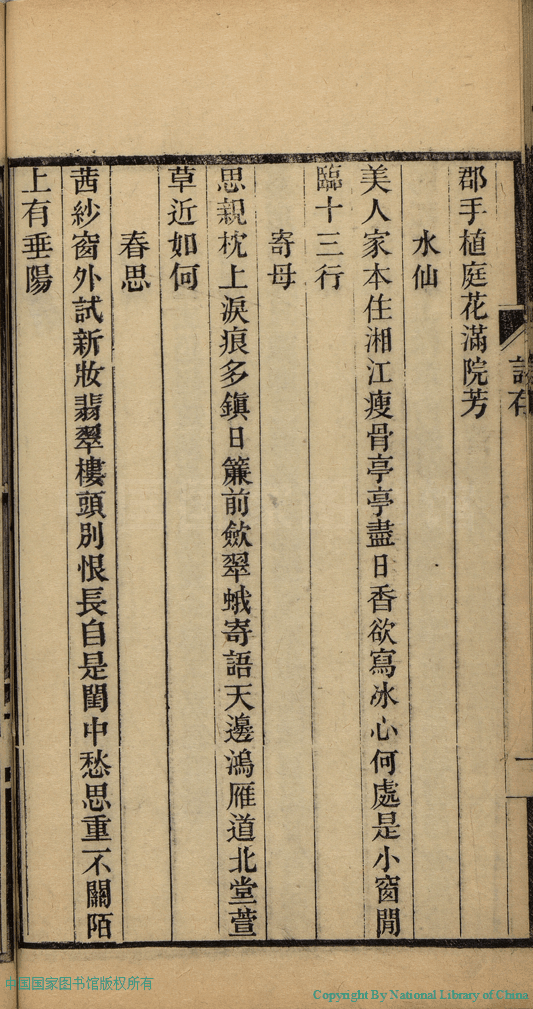 郡手植庭花滿院芳
水仙
美人家本住湘江瘦骨亭亭盡日香欲寫冰心何處是小窗閒
臨十三行
寄母
思親枕上淚痕多鎮日簾前斂翠蛾寄語天邊鴻雁道北堂萱
草近如何
春思
茜紗窗外試新妝翡翠樓頭別恨長自是閨中愁思重不關陌
上有垂陽
中国国家图书馆版权所有
Copyright By National Library of China